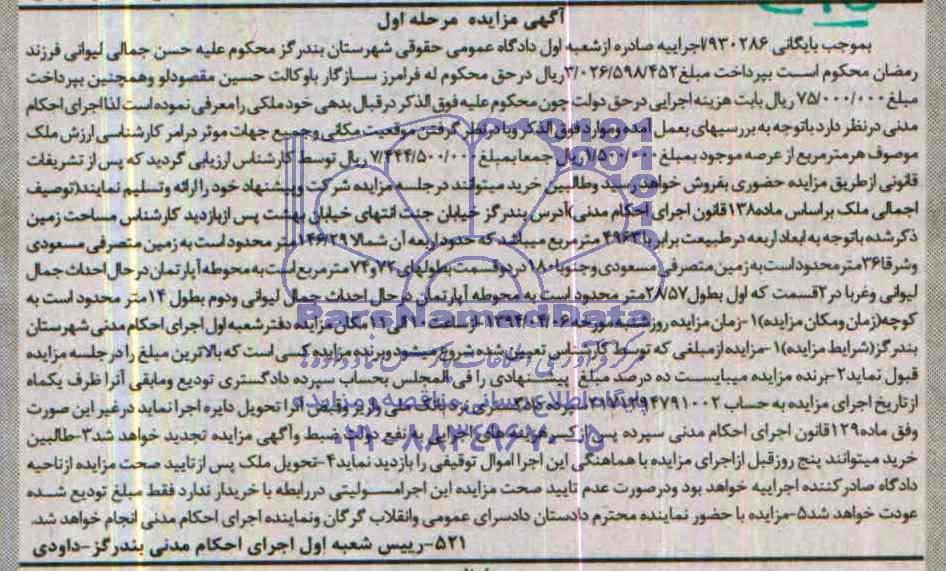 آگهی مزایده مرحله اول
بموجب بایگانی ۹۳۰۲۸۶/اجراییه صادره ازشعبه اول دادگاه عمومی حقوقی شهرستان بندرگز محکوم علیه حسن جمالی لیوانی فرزند
رمضان محکوم است بپرداخت مبلغ ۳/۰۲۶/۵۹۸/۴۵۲ریال درحق محکوم له فرامرز سازگار باوکالت حسین مقصودلو وهمچنین بپرداخت
مبلغ ۷۵/۰۰۰/۰۰۰ ریال بابت هزینه اجرایی درحق دولت چون محکوم علیه فوق الذکر درقبال بدهی خود ملکی رامعرفی نموده است لذا اجرای احکام
مدنی درنظر دارد باتوجه به بررسیهای بعمل آمده وموارد فوق الذکر وبا درنظر گرفتن موقعیت مکانی وجمیع جهات موثر درامر کارشناسی ارزش ملک
موصوف هرمترمربع از عرصه موجود بمبلغ ۱/۵۰۰/۰۰۰ریال جمعا بمبلغ ۷/۴۴۴/۵۰۰/۰۰۰ ریال توسط کارشناس ارزیابی گردید که پس از تشریفات
قانونی ازطریق مزایده حضوری بفروش خواهد رسید وطالبین خرید میتوانند درجلسه مزایده شرکت وپیشنهاد خود را ارائه وتسلیم نمایند(توصیف
اجمالی ملک براساس ماده۱۳۸قانون اجرای احکام مدنی)آدرس بندرگز خیابان جنت انتهای خیابان بهشت پس ازبازدید کارشناس مساحت زمین
ذکرشده باتوجه به ابعاد اربعه درطبیعت برابر با۴۹۶۳ مترمربع میباشد که حدوداربعه آن شمالا ۱۴۶/۲۹متر محدود است به زمین متصرفی مسعودی
وشرقا۳۶مترمحدود است به زمین متصرفی مسعودی وجنوبا۱۸۰ دردوقسمت بطولهای۷۲و۷۴ مترمربع است به محوطه آپارتمان درحال احداث جمال
لیوانی وغربا در۲قسمت که اول بطول۲۸/۵۷متر محدود است به محوطه آپارتمان درحال احداث جمال لیوانی ودوم بطول ۱۴متر محدود است به
کوچه(زمان ومکان مزایده)۱-زمان مزایده روز شنبه مورخه ۱۳۹۴/۰۴/۰۶ ازساعت۱۰الی۱۱مکان مزایده دفترشعبه اول اجرای احکام مدنی شهرستان
بندرگز(شرایط مزایده)۱-مزایده ازمبلغی که توسط کارشناس تعیین شده شروع میشود وبرنده مزایده کسی است که بالاترین مبلغ را درجلسه مزایده
قبول نماید۲-برنده مزایده میبایست ده درصد مبلغ پیشنهادی را فی المجلس بحساب سپرده دادگستری تودیع ومابقی آنرا ظرف یکماه
ازتاریخ اجرای مزایده به حساب سپرده دادگستری نزد بانک ملی واریز وقبض آنرا تحویل دایره اجرا نماید درغیر این صورت
وفق ماده۱۲۹قانون اجرای احکام مدنی سپرده پس ازکسر هزینه های اجرایی به نفع دولت ضبط وآگهی مزایده تجدید خواهد شد۳-طالبین
خرید میتوانند پنج روزقبل ازاجرای مزایده با هماهنگی این اجرا اموال توقیفی را بازدید نماید۴-تحویل ملک پس ازتایید صحت مزایده ازناحیه
دادگاه صادرکننده اجراییه خواهد بود ودرصورت عدم تایید صحت مزایده این اجرامسولیتی دررابطه با خریدار ندارد فقط مبلغ تودیع شده
عودت خواهد شد۵-مزایده با حضور نماینده محترم دادستان دادسرای عمومی وانقلاب گرگان ونماینده اجرای احکام مدنی انجام خواهد شد.
۵۲۱-رییس شعبه اول اجرای احکام مدنی بندرگز-داودی
ParsNamadData
پایگاه اطلاع رسانی مناقصه و مزایده
۰۲۱-۸۸۳۴۹۶۷۰-۵